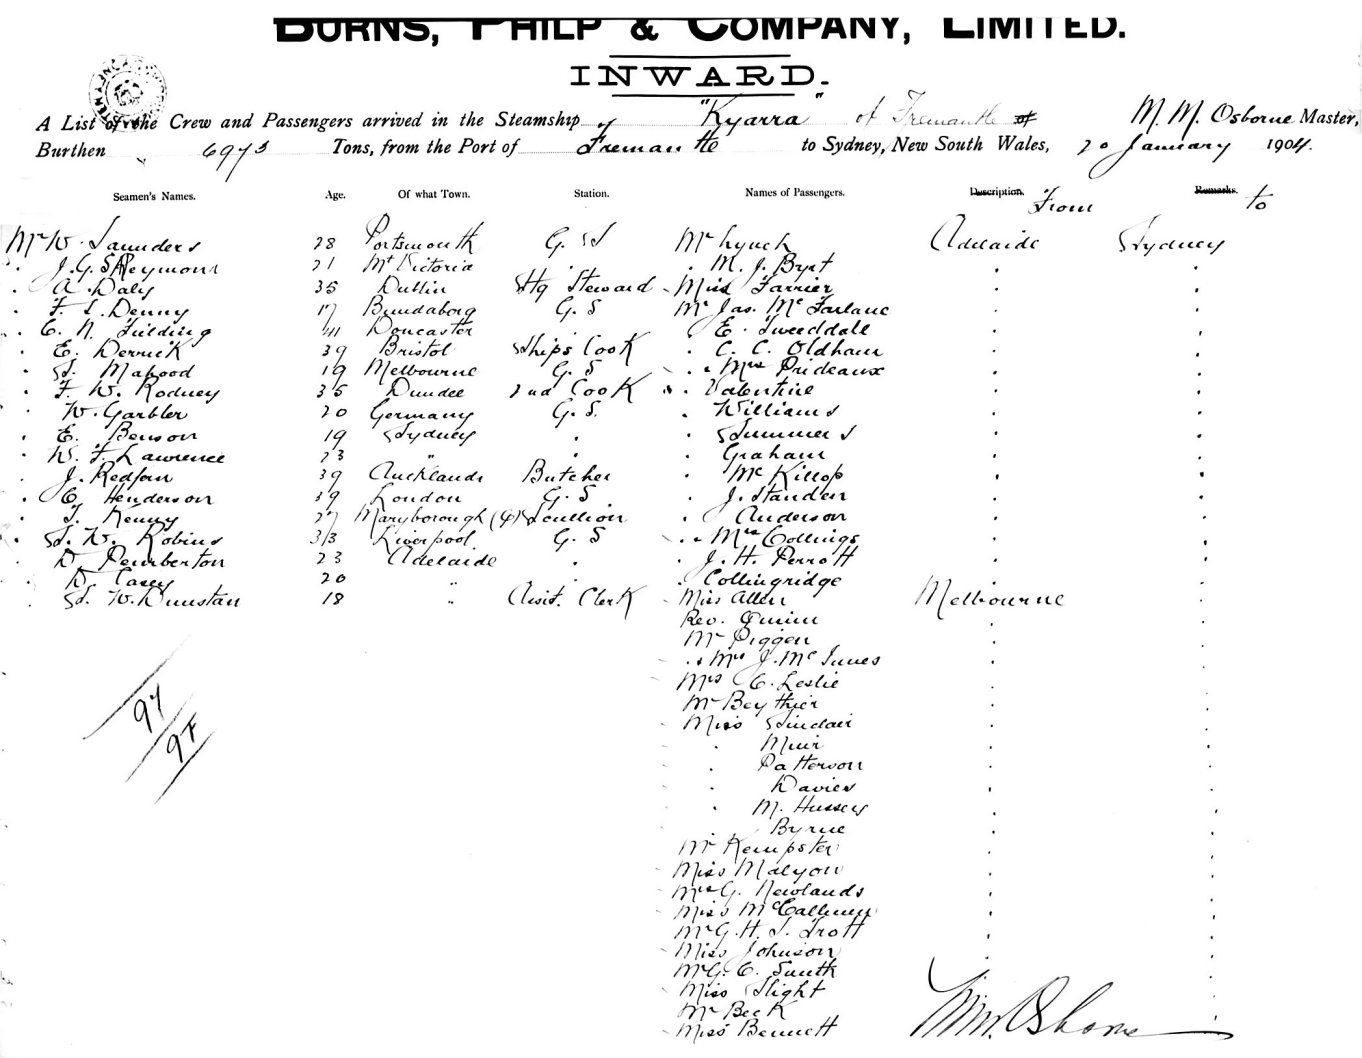 BURNS, PHILP & COMPANY, LIMITED.
INWARD.
A List of the Crew and Passengers arrived in the Steamship of "Kyarra" of Fremantle of M. M. Osborne Master,
Burthen 6973 Tons, from the Port of Fremantle to Sydney, New South Wales, 20 January 1904.
Seamen's Names. Age. Of what Town. Station. Names of Passengers. Description. From Remarks. to
Mr W. Saunders 28 Portsmouth G. S Mr Lynch Adelaide Sydney
" J. G. S 21 Mt Victoria " " M. J. Byrt " "
" A. Daly 35 Dublin Steward Miss Farrier " "
" F. L. Denny 17 Bundaberg G. S Mr Jas. McFarlane " "
" C. N. Fielding 41 Doncaster " E. Tweeddall " "
" E. Derrick 39 Bristol Ships Cook " C. C. Oldham " "
" S. Mahood 19 Melbourne G. S " " Mrs Prideaux " "
" F. W. Rodney 35 Dundee 2nd Cook " Valentine " "
" W. Garbler 20 Germany G. S. " Williams " "
" E. Benson 19 Sydney " " Summers " "
" W. F. Lawrence 23 " " " Graham " "
" J. Redfern 39 Aucklands Butcher " McKillop " "
" C. Henderson 39 London G. S " J. Standen " "
" T. Kenny 27 Maryborough (Q) Scullion " Anderson " "
" S. W. Robins 33 Liverpool G. S " " Mrs Collings " "
" D. Pemberton 23 Adelaide " " J. H. Perrott " "
" D. Casey 20 " " Collingridge " "
" S. W. Dunstan 18 " Asist. Clerk Miss Allen Melbourne "
Rev. Quinn " "
Mr Piggen " "
" " Mrs J. McInnes " "
Mrs C. Leslie " "
Mr Beythier " "
Miss Sinclair " "
" Muir " "
" Patterson " "
" Davies " "
" M. Hussey " "
" Byrne " "
Mr Kempster " "
Miss Malyon " "
Mrs G. Newlands " "
Miss McCallum " "
Mr G. H. S. Trott " "
Miss Johnson " "
Mr G. C. Smith " "
Miss Slight "
Mr Beck "
Miss Bennett
97
97
M. M. Osborne